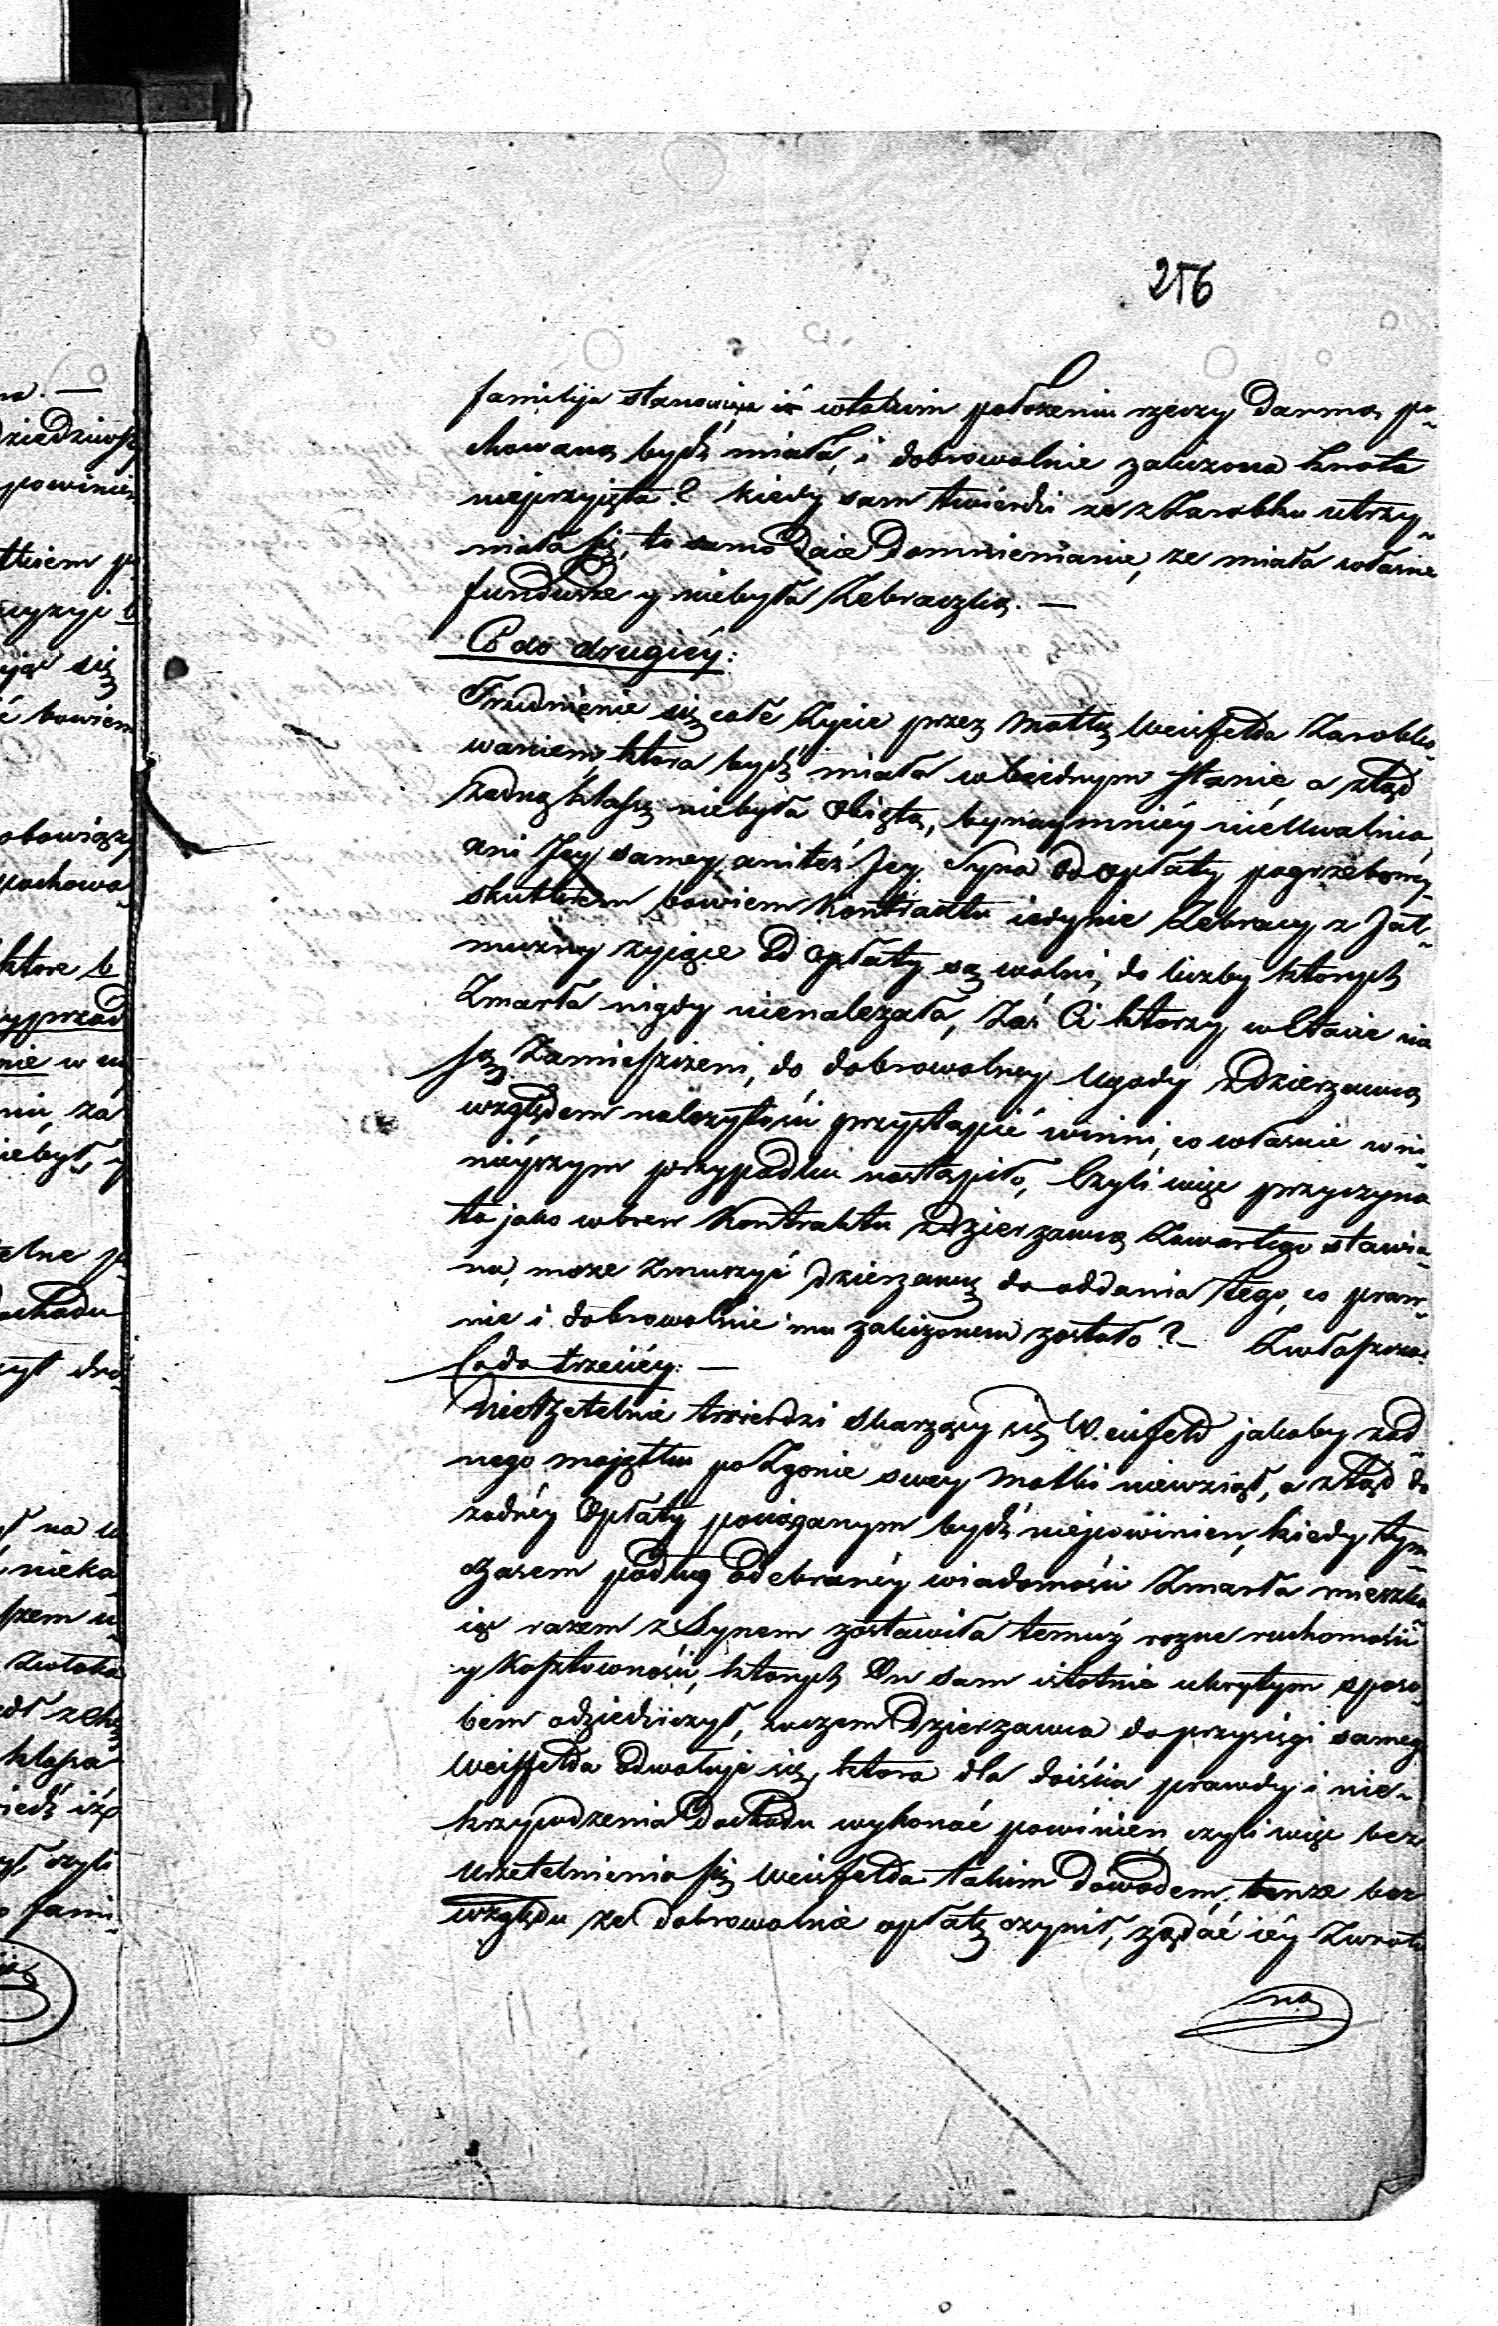 256
familija stanowiąca iż wtakim położeniu rzeczy darmo po„
chowaną bydź miała, i dobrowolnie zaliczona kwota
nieprzyięta? kiedy sam twierdzi że z Zarobku utrzy„
miała się, to samo daie domniemanie, że miała własne
fundusze y niebyła Żebraczką. —
Co do drugiéy:
Trudnienie się całe Życie przez Matkę Weisfelda Zarobko
waniem, ktora bydź miała wbiednym stanie, a ztąd
żadną klassą niebyła obięta, bynaymniéy nieUwalnia,
ani Jey samey, aniteż Jey Syna od opłaty pogrzebowéy,
skutkiem bowiem Kontraktu iedynie Żebracy z Jał„
mużny żyiące od opłaty są wolni, do liczby ktorych
Zmarła nigdy nienależała, Zaś Ci ktorzy w Etacie nie
są Zamieszczeni, do dobrowolney Ugody z dzierzawcą
względem należytości przystąpić winni, co własnie w ni„
nieyszym przypadku nastąpiło, Czyli więc przyczyna
ta jako wbrew Kontraktu z dzierzawcą Zawartego stawia„
na, może zmuszyć dzierzawcę do oddania tego, co praw„
nie i dobrowolnie mu zaliczonem zostało? — Zwłaszcza:
Co do trzeciéy: —
Nierzetelnie twierdzi skarzący się Weisfeld jakoby żad„
nego majątku po Zgonie swey Matki niewziął, a ztąd do
żadnéy Opłaty pociąganym bydź niepowinien, kiedy tym„
czasem podług odebranéy wiadomości Zmarła mieszka
iąc razem z Synem zostawiła temuż rozne ruchomości
y Kosztowności, ktorych On sam istotnie ukrytym sposo„
bem odziedziczył, zaczem Dzierzawca do przysięgi samego
Weisfelda odwołuje się, ktora dla doiścia prawdy i nie„
krzywdzenia Dochodu wykonać powinien, czyli więc bez
urzetelnienia się Weisfelda takim dowodem, tenże bez
względu że dobrowolnie opłatę czynił, żądać iéy Zwrotu